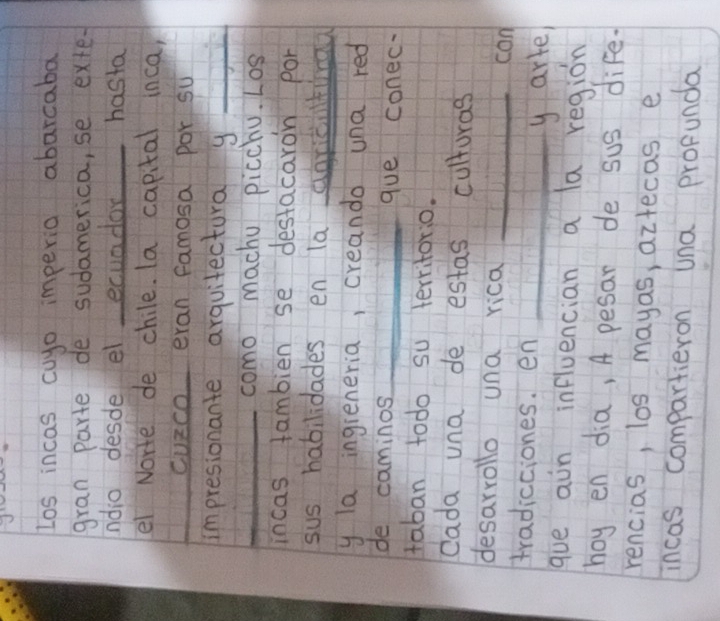 Los incas cuyo imperio abarcaba
gran parte de sudamerica, se exte-
ndio desde el ecuador hasta
el Norte de chile. la capital inca,
cuzco eran famosa por su
impresionante arquitectura y ____
____ como machu picchu. Los
incas tambien se destacarón por
sus habilidades en la agricultura
y la ingieneria, creando una red
de caminos ____ que conec-
taban todo su territorio.
Cada una de estas culturas
desarrollo una rica ____ con
tradicciones. en ____ y arte,
que aún influencian a la región
hoy en dia, A pesar de sus dife-
rencias, los mayas, aztecas e
incas compartieron una profunda